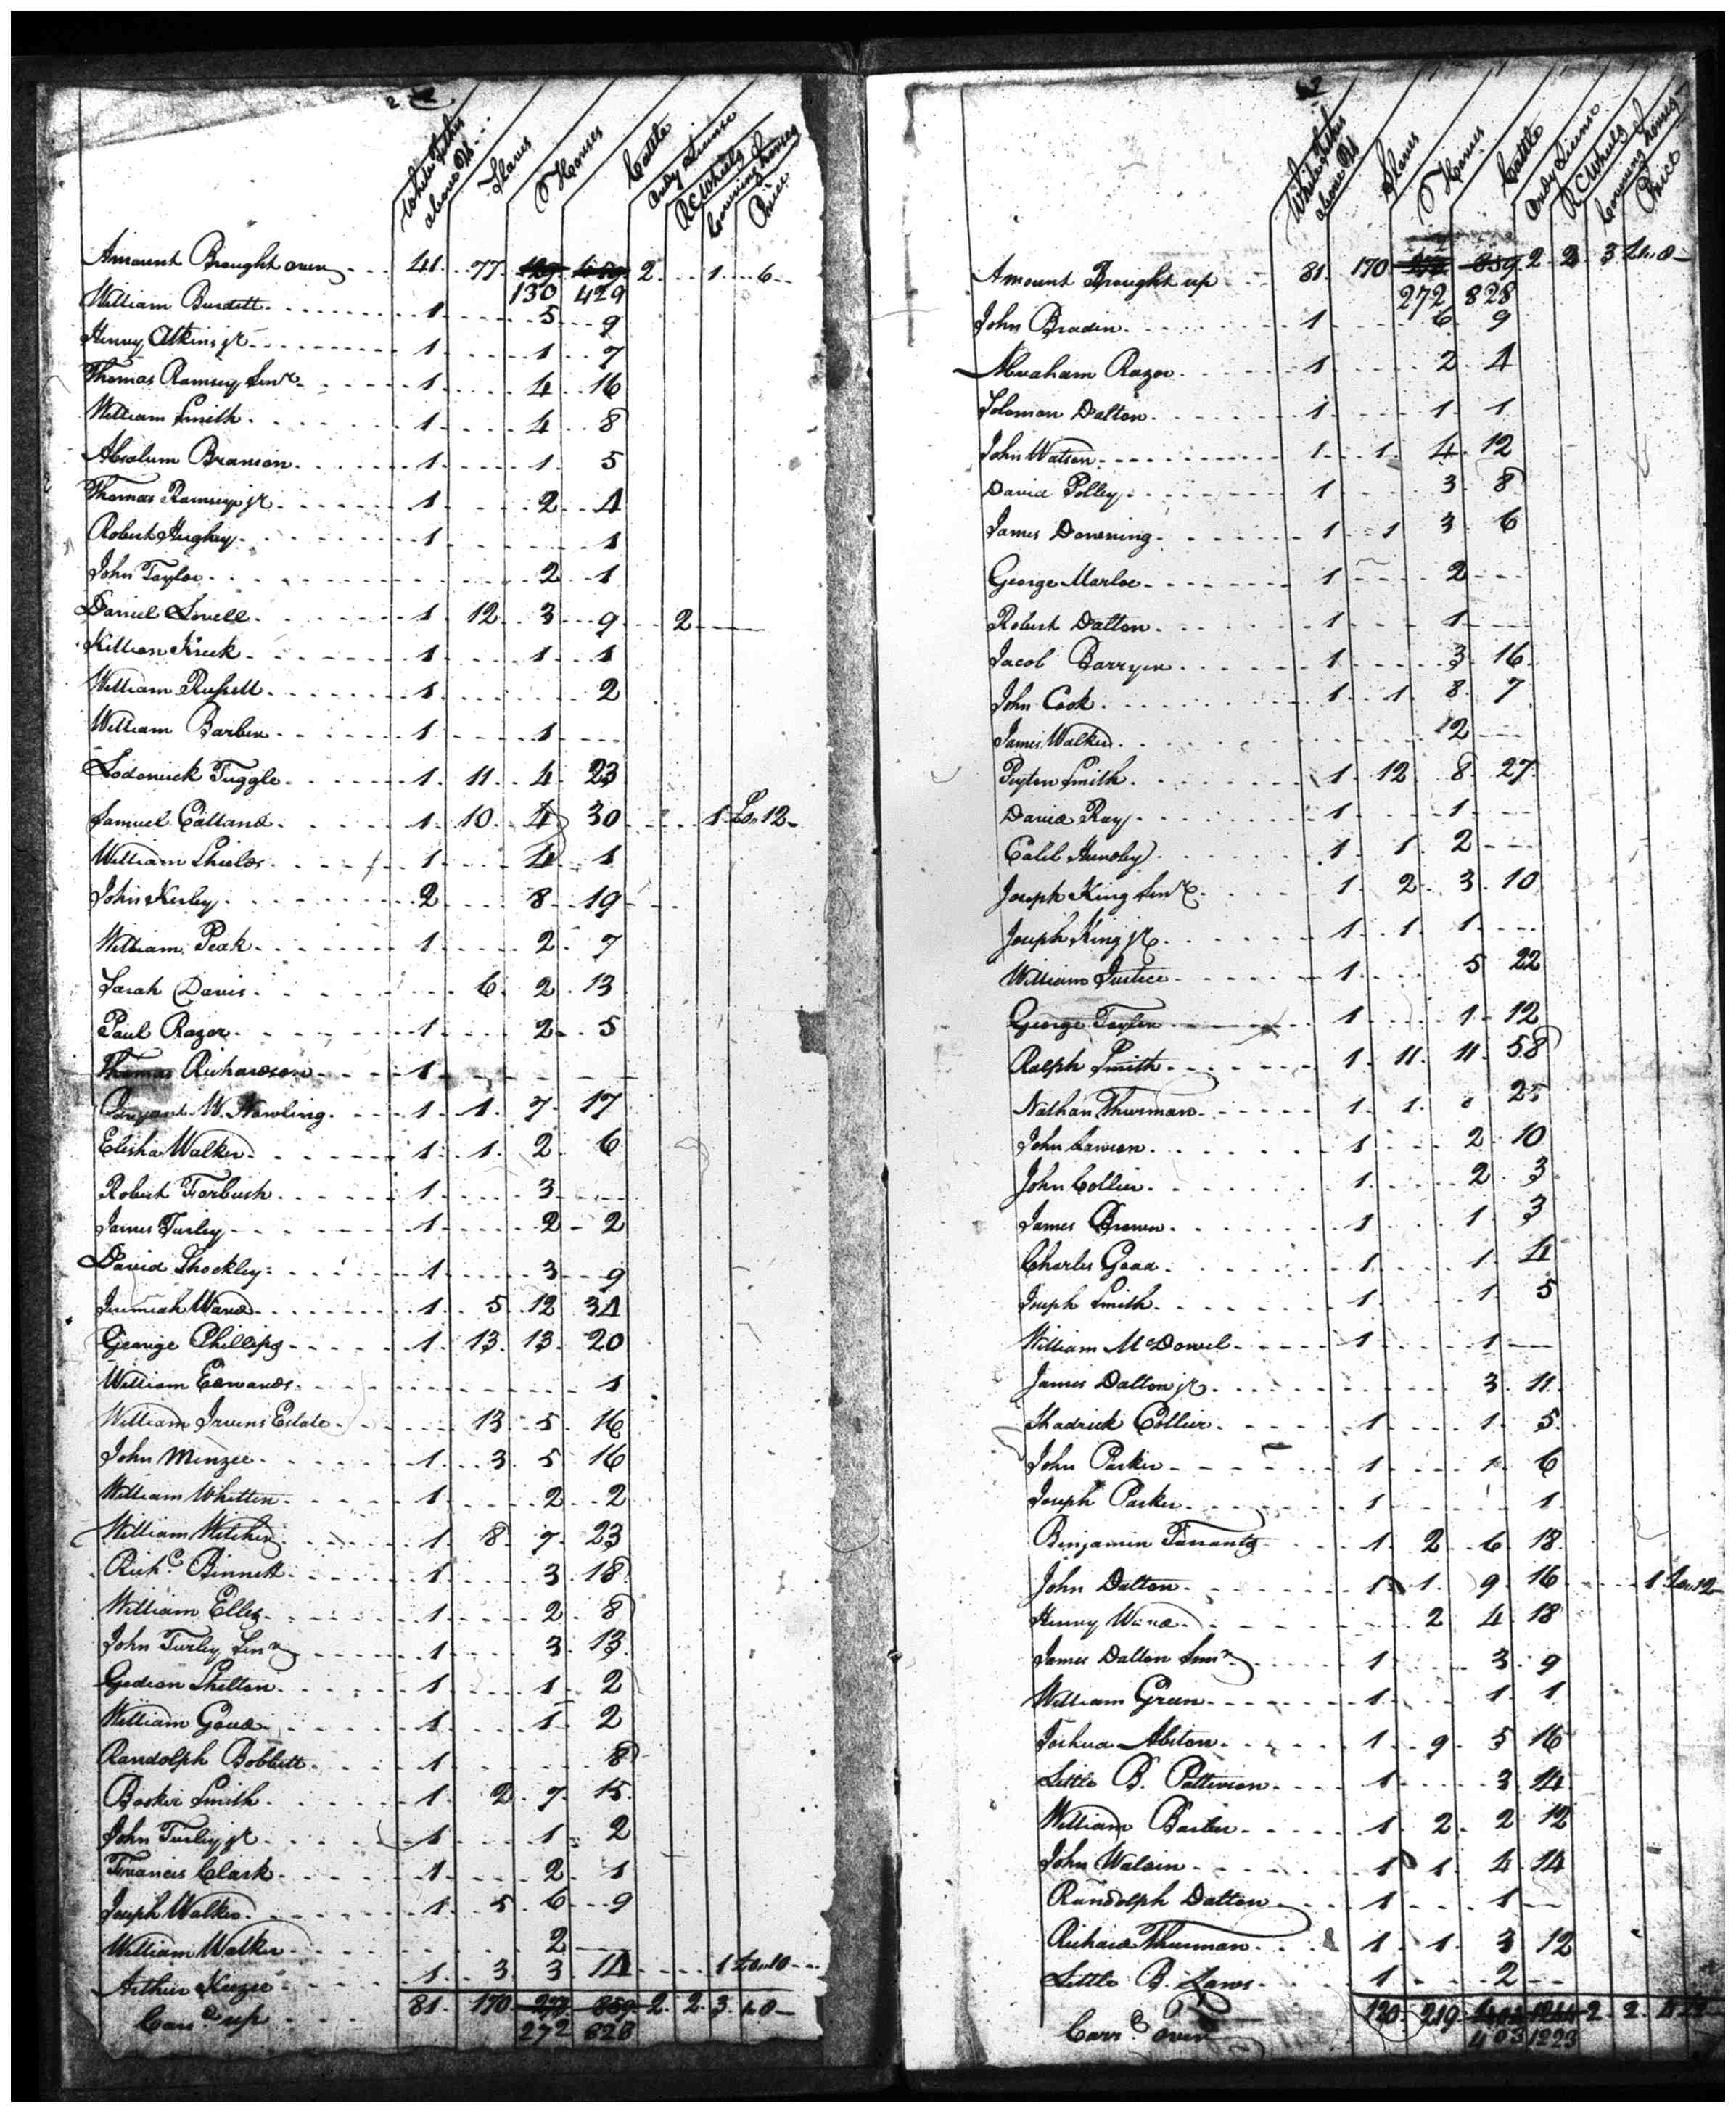 2
White Tithes above 16
Slaves
Horses
Cattle
Ordy License
R C Wheels
Covering horses
Price
Amount Brought over 41 77 129 2 1 6
130 429
William Burdett 1 5 9
Henry Atkins jr 1 1 7
Thomas Ramsey Senr 1 4 16
William Smith 1 4 8
Absalum Branson 1 1 5
Thomas Ramsey jr 1 2 4
Robert Hughey 1 1
John Taylor 2 1
Daniel Lovell 1 12 3 9 2
Killion Kreek 1 1 1
William Russell 1 2
William Barber 1 1
Lodowick Tuggle 1 11 4 23
Samuel Calland 1 10 4 30 1 12
William Shields 1 4 1
John Kerley 2 8 19
William Peak 1 2 7
Sarah Davis 6 2 13
Paul Razor 1 2 5
Thomas Richardson 1
W. Nowling 1 1 7 17
Elisha Walker 1 1 2 6
Robert Farbush 1 3
James Turley 1 2 2
David Shockley 1 3 9
Jeremiah Ward 1 5 12 34
George Phillips 1 13 13 20
William Edwards 1
William Irvins Estate 13 5 16
John Menzee 1 3 5 16
William Whitten 1 2 2
William Witcher 1 8 7 23
Richd Binnett 1 3 18
William Ellis 1 2 8
John Turley Senr 1 3 13
Gideon Shelton 1 1 2
William Goad 1 1 2
Randolph Bobbitt 1 8
Booker Smith 1 2 7 15
John Turley jr 1 1 2
Francis Clark 1 2 1
Joseph Walker 1 5 6 9
William Walker 2
Arthur Keezee 1 3 3 14 1 10
Card up 81 170 859 2 2 3
272 828
White Tithes above 16
Slaves
Horses
Cattle
Ordy License
R C Wheels
Covering horses
Price
Amount Brought up 81 170 859 2 2 3
272 828
John Bradin 1 6 9
Abraham Razor 1 2 4
Solomon Dalton 1 1 1
John Watson 1 1 4 12
David Polley 1 3 8
James Downing 1 1 3 6
George Marloe 1 2
Robert Dalton 1 1
Jacob Barryer 1 3 16
John Cook 1 1 8 7
James Walker 2
Peyton Smith 1 12 8 27
David Ray 1 1
Calib Hundley 1 1 2
Joseph King Senr 1 2 3 10
Joseph King jr 1 1 1
William Justice 1 5 22
George Taylor 1 1 12
Ralph Smith 1 11 11 58
Nathan Thurman 1 1 25
John Lawson 1 2 10
John Collier 1 2 3
James Brown 1 1 3
Charles Goad 1 1 4
Joseph Smith 1 1 5
William McDowel 1 1
James Dalton jr 3 11
Shadrick Collier 1 1 5
John Parker 1 1 6
Joseph Parker 1 1 1
Benjamin Tarrants 1 2 6 18
John Dalton 1 1 9 16 1 12
Henry Ward 2 4 18
James Dalton Senr 1 3 9
William Green 1 1 1
Joshua Abston 1 9 5 16
Little B. Patterson 1 3 14
William Barber 1 2 2 12
John Walsin 1 1 4 14
Randolph Dalton 1 1
Richard Thurman 1 1 3 12
Little B. Laws 1 2
Carrd over 120 219 2 2 4
403 1223